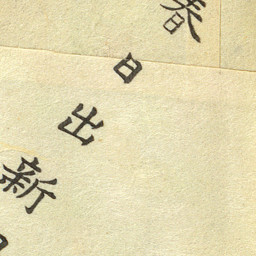 春日出新